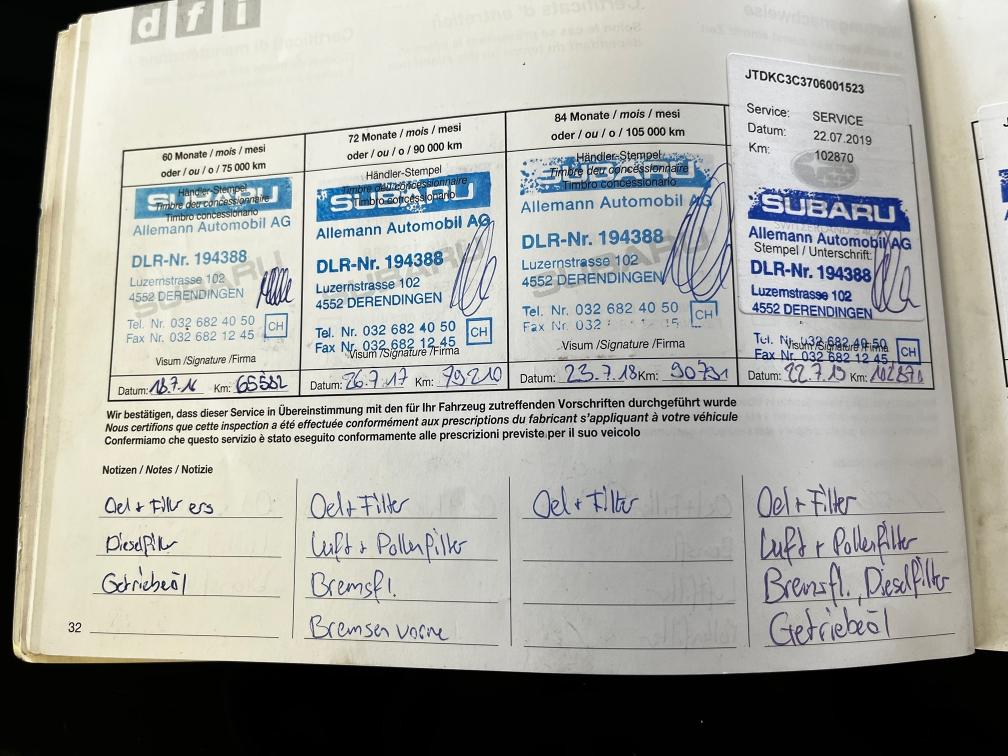 dfi
60 Monate / mois / mesi
oder / ou / o / 75 000 km
Händler-Stempel
Timbre deu concessionnaire
Timbro concessionario
SUBARU
Allemann Automobil AG
DLR-Nr. 194388
Luzernstrasse 102
4552 DERENDINGEN
Tel. Nr. 032 682 40 50
Fax Nr. 032 682 12 45
CH
Visum /Signature /Firma
Datum: 18.7.16 Km: 65582
72 Monate / mois / mesi
oder / ou / o / 90 000 km
Händler-Stempel
Timbre deu concessionnaire
Timbro concessionario
SUBARU
Allemann Automobil AG
DLR-Nr. 194388
Luzernstrasse 102
4552 DERENDINGEN
Tel. Nr. 032 682 40 50
Fax Nr. 032 682 12 45
CH
Visum /Signature /Firma
Datum: 26.7.17 Km: 79210
84 Monate / mois / mesi
oder / ou / o / 105 000 km
Händler-Stempel
Timbre deu concessionnaire
Timbro concessionario
SUBARU
Allemann Automobil AG
DLR-Nr. 194388
Luzernstrasse 102
4552 DERENDINGEN
Tel. Nr. 032 682 40 50
Fax Nr. 032
CH
Visum /Signature /Firma
Datum: 23.7.18 Km: 90791
JTDKC3C3706001523
Service: SERVICE
Datum: 22.07.2019
Km: 102870
SUBARU
Allemann Automobil AG
Stempel / Unterschrift:
DLR-Nr. 194388
Luzernstrasse 102
4552 DERENDINGEN
Tel. Nr. 032 682 40 50
Visum /Signature /Firma
Fax Nr. 032 682 12 45
CH
Datum: 22.7.19 Km: 102870
Wir bestätigen, dass dieser Service in Übereinstimmung mit den für Ihr Fahrzeug zutreffenden Vorschriften durchgeführt wurde
Nous certifions que cette inspection a été effectuée conformément aux prescriptions du fabricant s'appliquant à votre véhicule
Confermiamo che questo servizio è stato eseguito conformamente alle prescrizioni previste per il suo veicolo
Notizen / Notes / Notizie
Oel + Filter
Dieselfilter
Getriebeöl
Oel + Filter
Luft + Pollenfilter
Bremsfl.
Bremsen vorne
Oel + Filter
Oel + Filter
Luft + Pollenfilter
Bremsfl., Dieselfilter
Getriebeöl
32